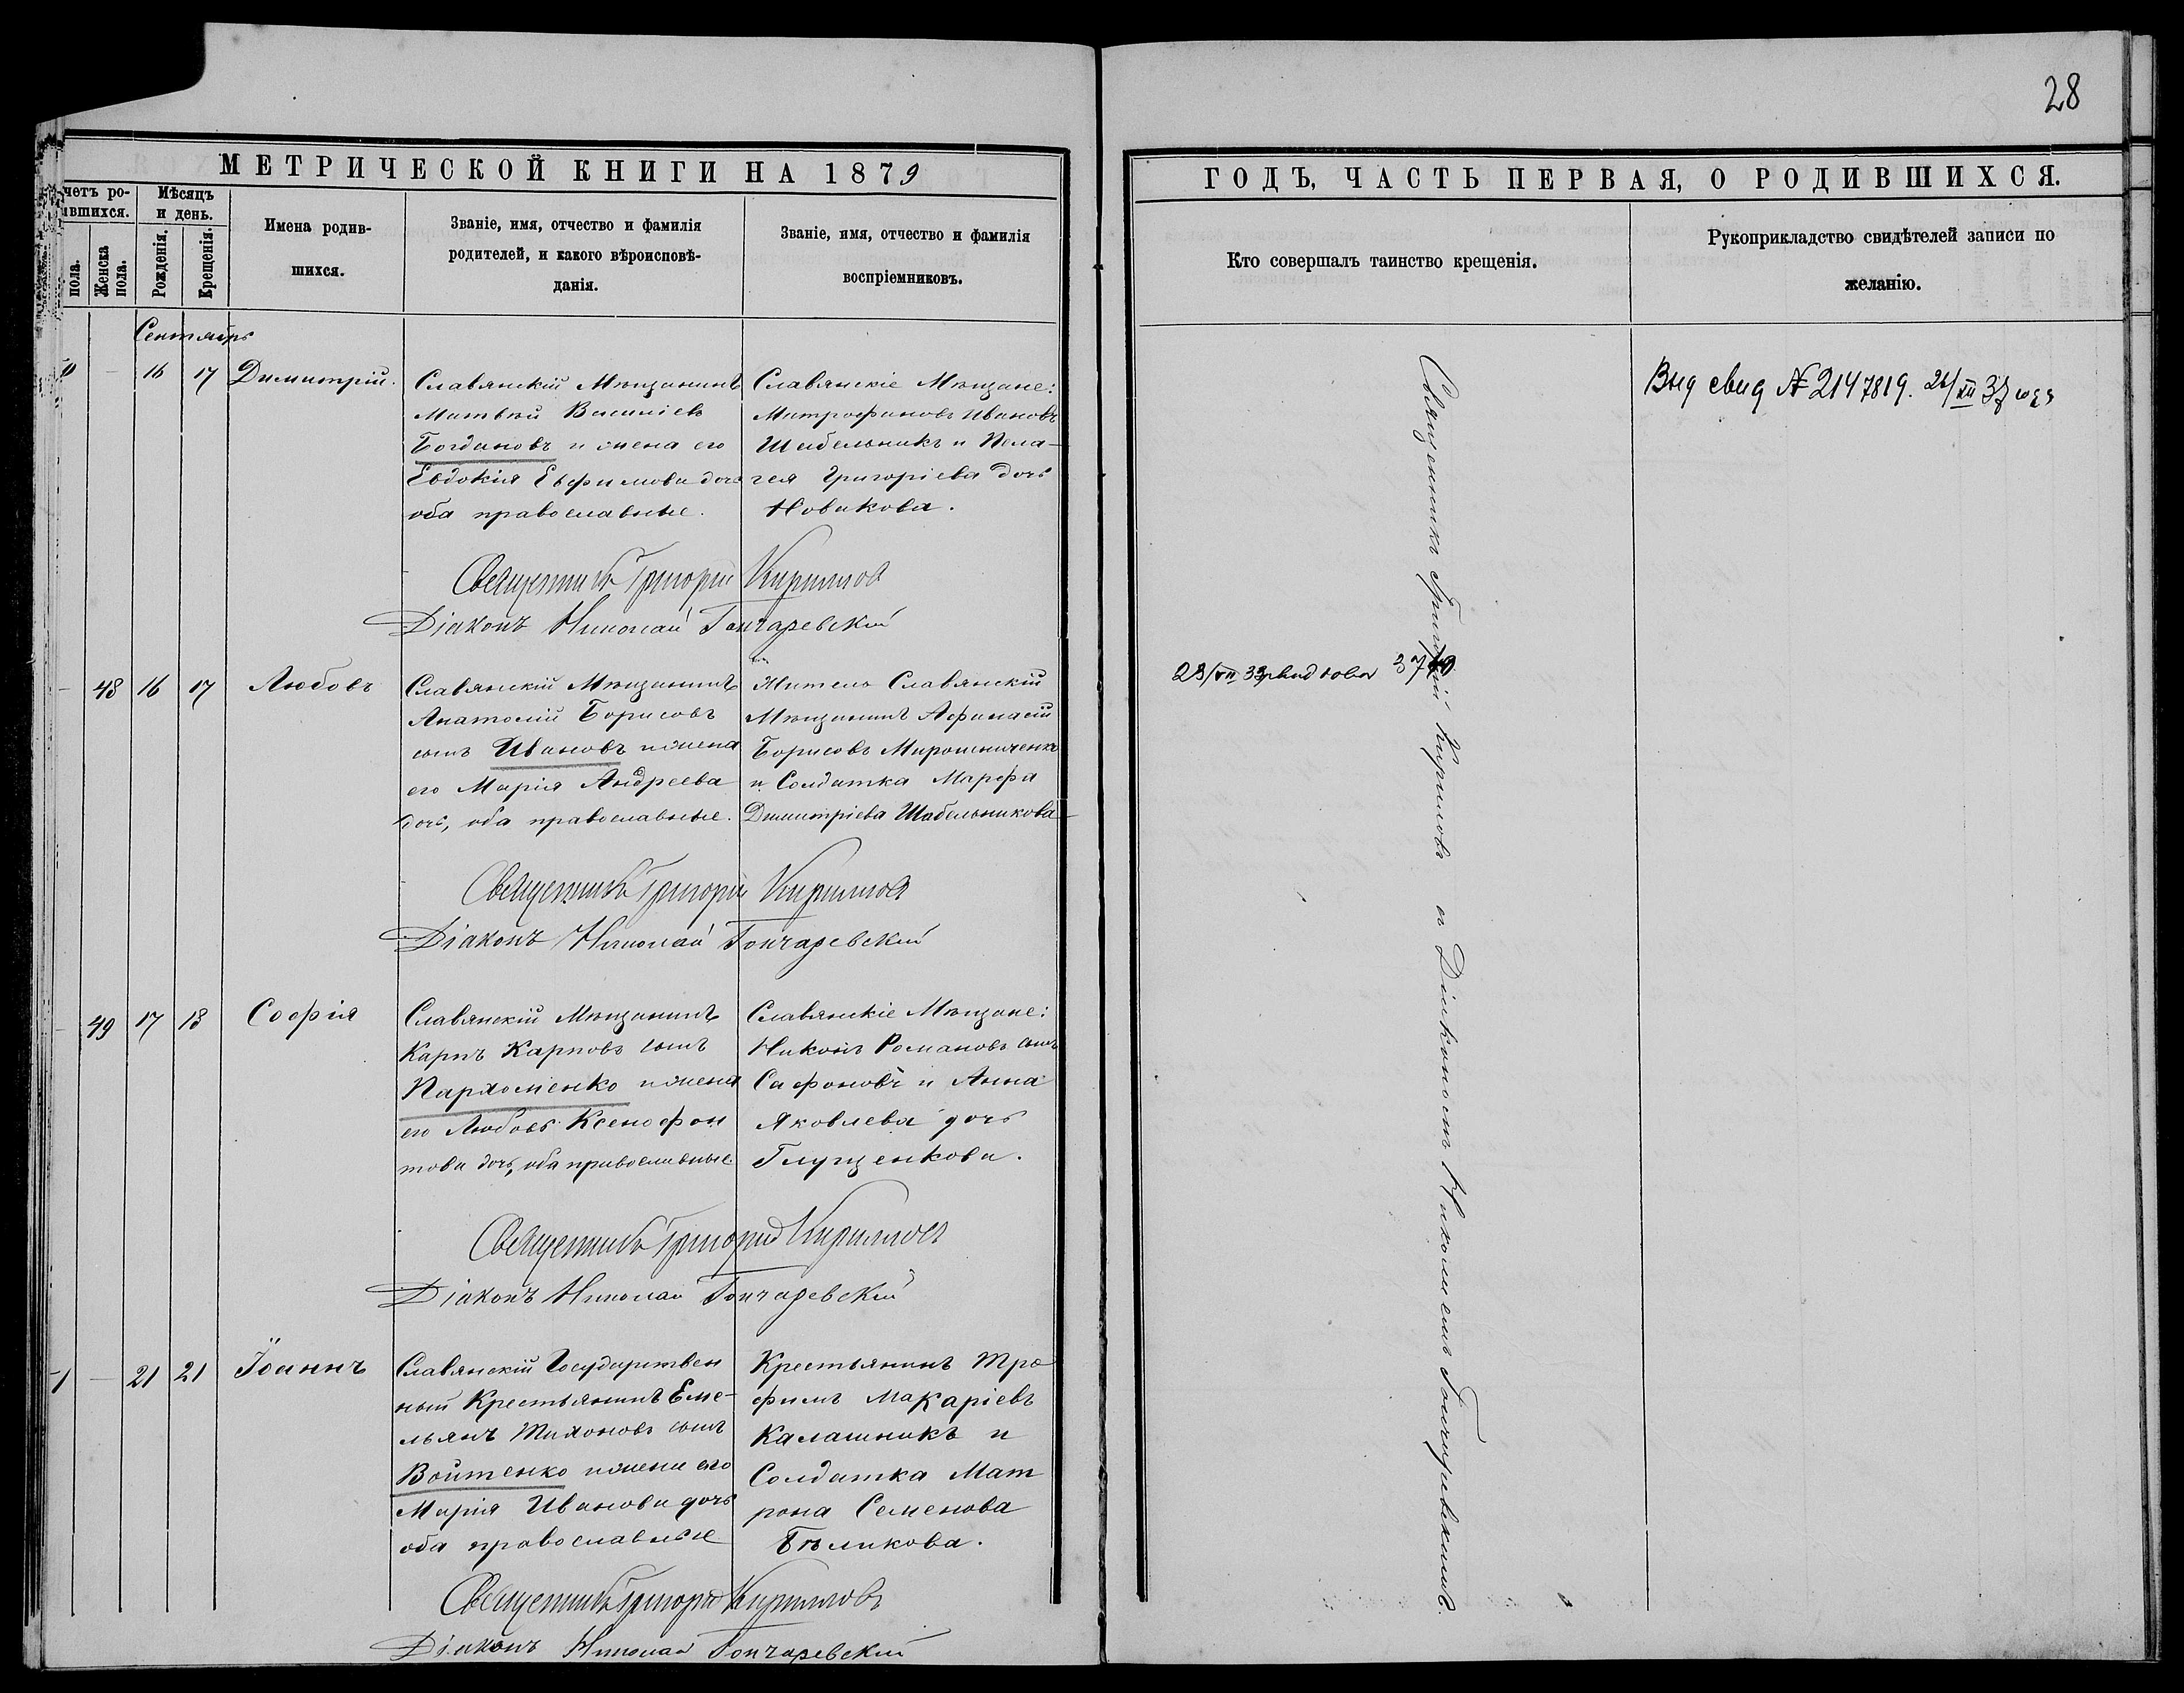 28
МЕТРИЧЕСКОЙ КНИГИ НА 1879
четъ ро-
ившихся.
пола.
Женска
пола.
Мѣсяцъ
и день.
Рожденія.
Крещенія.
Имена родив-
шихся.
Званіе, имя, отчество и фамилія
родителей, и какого вѣроисповѣ-
данія.
Званіе, имя, отчество и фамилія
воспріемниковъ.
Сентябрь
0 — 16 17 Димитрій.
Славянскій Мѣщанинъ
Матвѣй Василіевъ
Богдановъ и жена его
Евдокія Евфимова дочь
оба православные.
Славянскіе Мѣщане:
Митрофановъ Ивановъ
Шабельникъ и Пела-
гея Григоріева дочь
Новикова.
Священникъ Григорій Кириллов
Діаконъ Николай Гончаревскій
— 48 16 17 Любовь
Славянскій Мѣщанинъ
Анатолій Борисовъ
сынъ Ивановъ и жена
его Марія Андреева
дочь, оба православные.
Житель Славянскій
Мѣщанинъ Афанасій
Борисовъ Мирошниченко
и Солдатка Марфа
Димитріева Шабельникова
Священникъ Григорій Кириллов
Діаконъ Николай Гончаревскій
— 49 17 18 Софія
Славянскій Мѣщанинъ
Карпъ Карповъ сынъ
Пархоменко и жена
его Любовь Ксенофон
това дочь, оба православные
Славянскіе Мѣщане:
Никонъ Романовъ сынъ
Сафоновъ и Анна
Яковлева дочь
Глущенкова.
Священникъ Григорій Кириллов
Діаконъ Николай Гончаревскій
1 — 21 21 Іоаннъ
Славянскій Государствен
ный Крестьянинъ Еме-
льянъ Тихоновъ сынъ
Войтенко и жена его
Марія Иванова дочь
оба православные
Крестьянинъ Тро
фимъ Макаріевъ
Калашникъ и
Солдатка Мат
рона Семенова
Бѣликова.
Священникъ Григорій Кирилловъ
Діаконъ Николай Гончаревскій
ГОДЪ, ЧАСТЬ ПЕРВАЯ, О РОДИВШИХСЯ.
Кто совершалъ таинство крещенія.
Рукоприкладство свидѣтелей записи по
желанію.
Священникъ Григорій Кириловъ съ Діакономъ Николаемъ Гончаревскимъ.
Выд свид № 2147819.